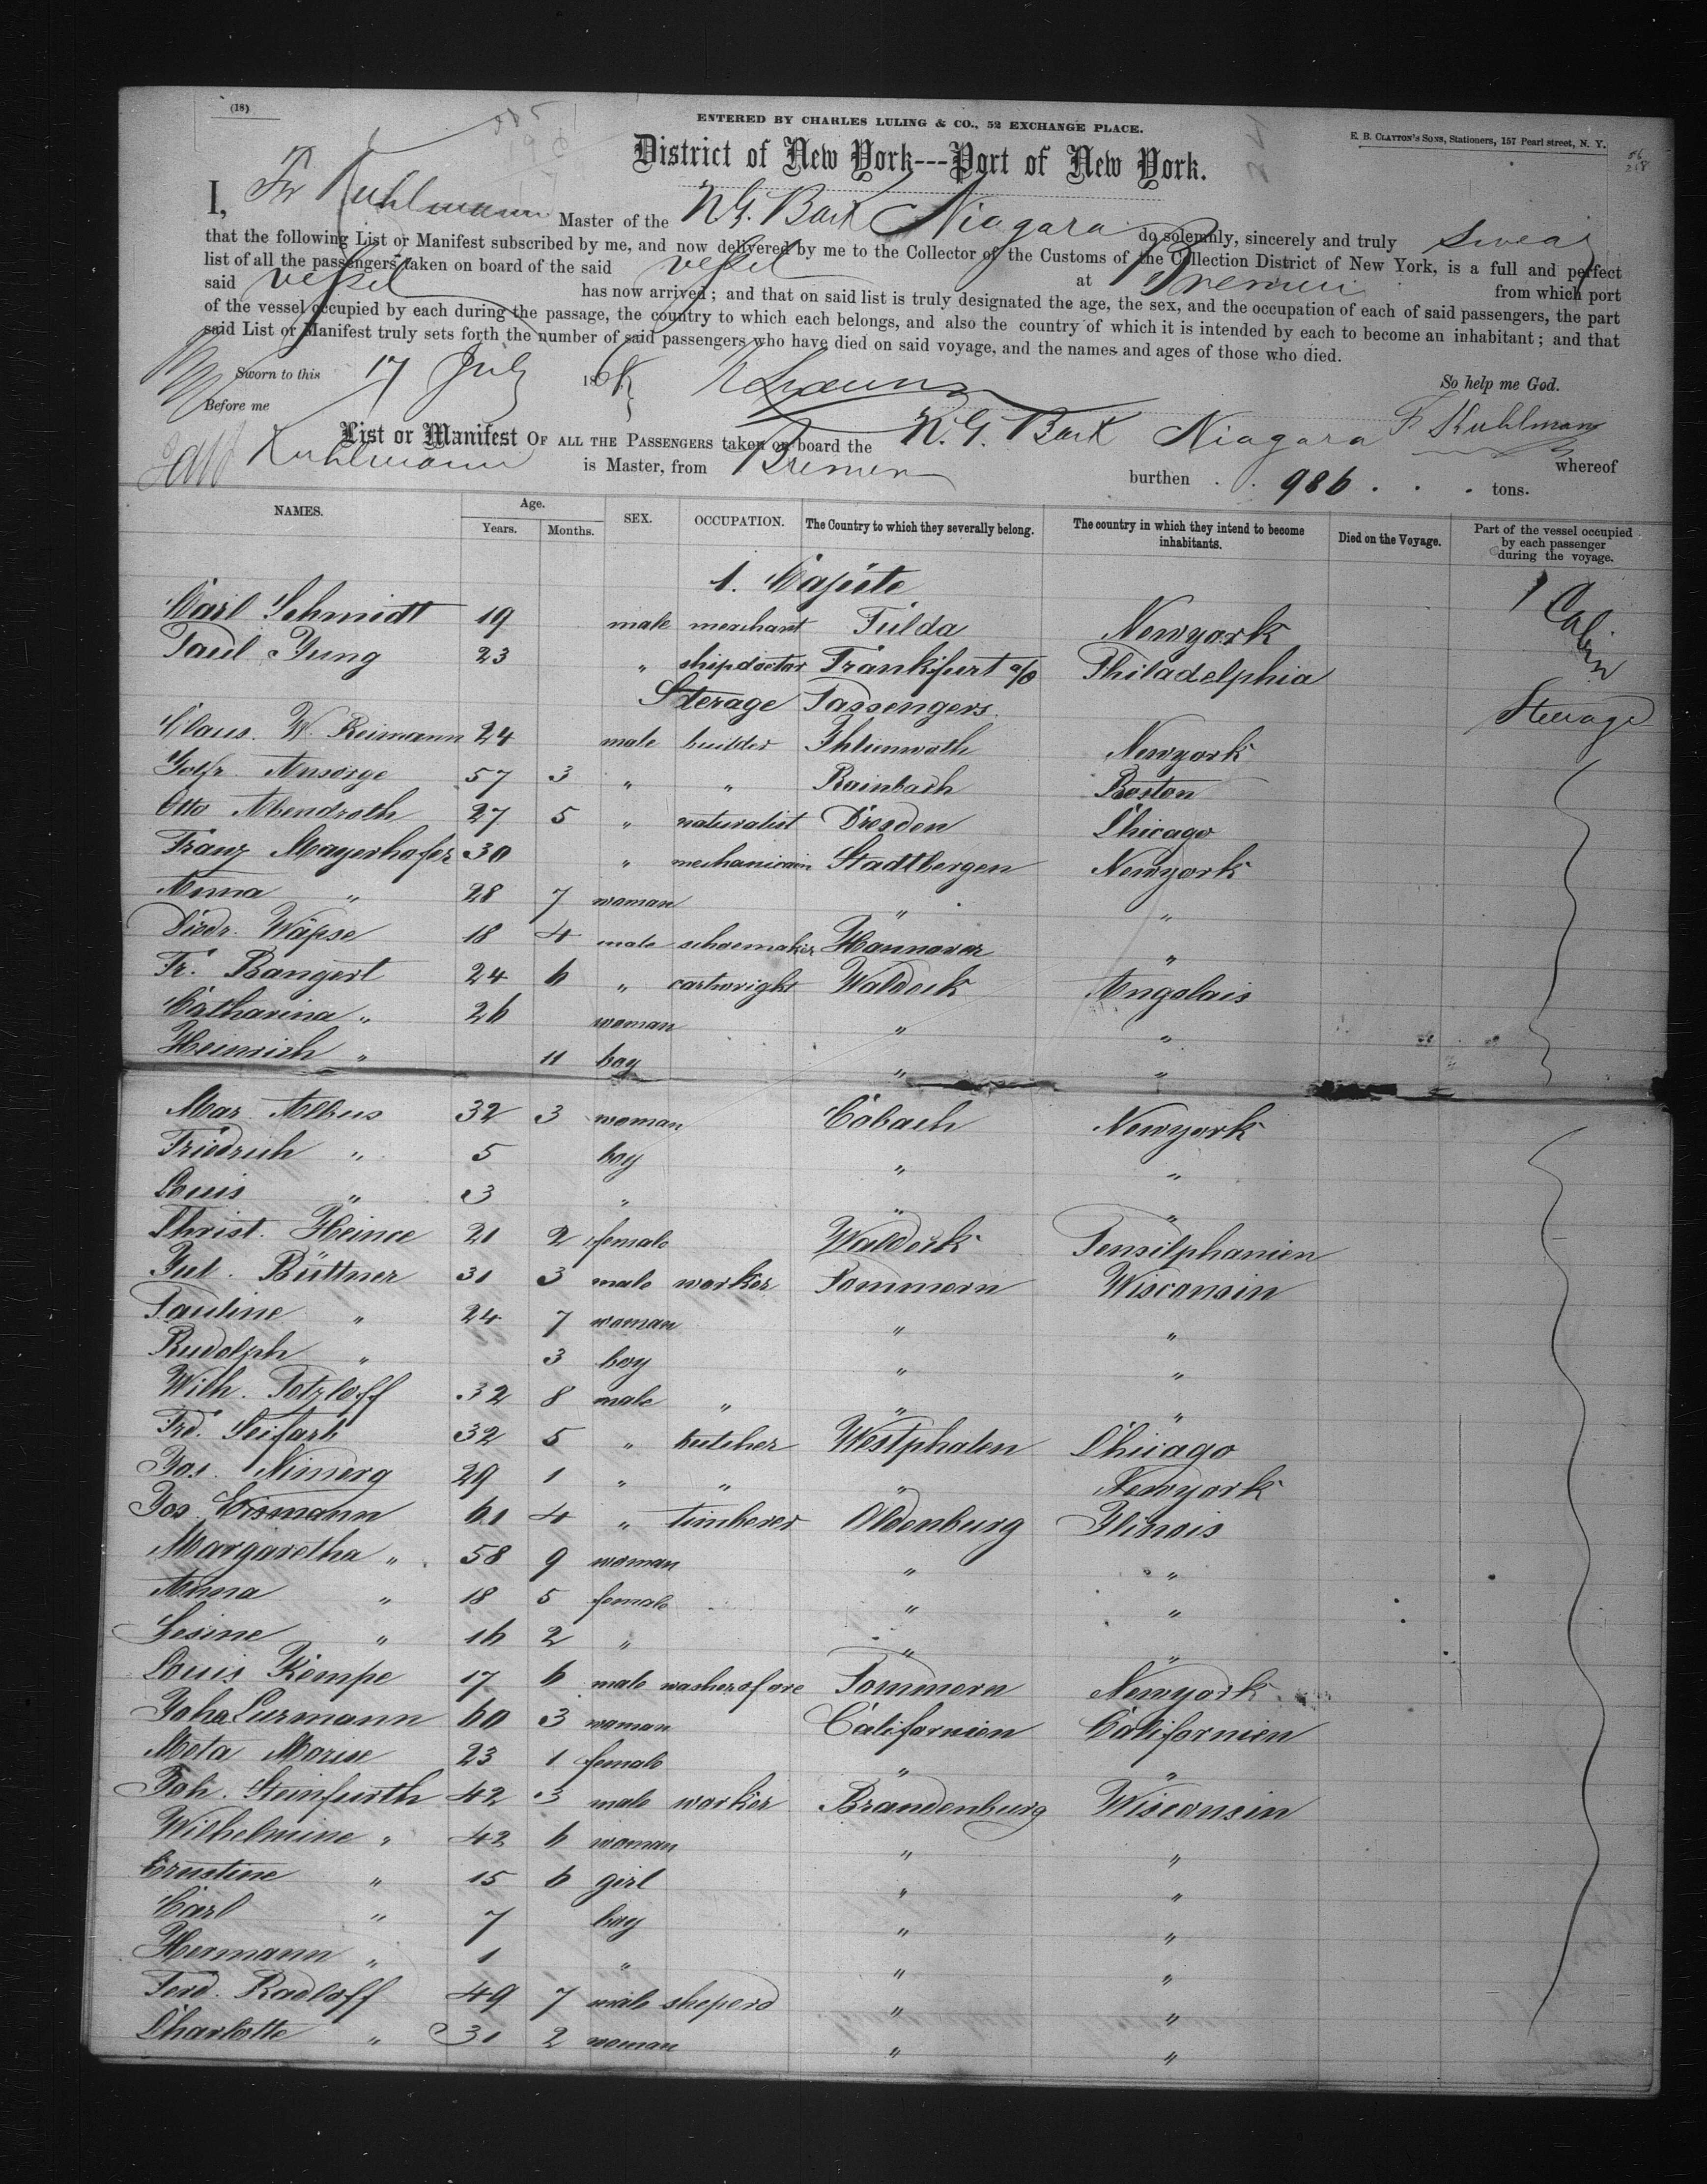 (18)
ENTERED BY CHARLES LULING & CO., 52 EXCHANGE PLACE.
E. B. CLAYTON'S SONS, Stationers, 157 Pearl street, N. Y.
District of New York---Port of New York.
I, Fr Kuhlmann Master of the N.G. Bark Niagara do solemnly, sincerely and truly swear
that the following List or Manifest subscribed by me, and now delivered by me to the Collector of the Customs of the Collection District of New York, is a full and perfect
list of all the passengers taken on board of the said vessel at Bremen from which port
said vessel has now arrived; and that on said list is truly designated the age, the sex, and the occupation of each of said passengers, the part
of the vessel occupied by each during the passage, the country to which each belongs, and also the country of which it is intended by each to become an inhabitant; and that
said List or Manifest truly sets forth the number of said passengers who have died on said voyage, and the names and ages of those who died.
Sworn to this 17 July 186 So help me God.
Before me F. Kuhlmann
List or Manifest OF ALL THE PASSENGERS taken on board the N. G. Bark Niagara whereof
Kuhlmann is Master, from Bremen burthen 986 tons.
NAMES. Age. Years. Months. SEX. OCCUPATION. The Country to which they severally belong. The country in which they intend to become inhabitants. Died on the Voyage. Part of the vessel occupied by each passenger during the voyage.
1. Cajüte 1 Cabin
Carl Schmidt 19 male merchant Fulda Newyork
Paul Jung 23 " shipdoctor Frankfurt a/o Philadelphia
Sterage Passengers. Steerage
Claus. W. Reimann 24 male builder Newyork
Gotfr. Ansorge 57 3 " " Rainbach Boston
Otto Abendroth 27 5 " naturalist Dresden Chicago
Franz Mayerhofer 30 " mechanicain Stadtbergen Newyork
Anna " 28 7 woman " "
Diedr. Wäpse 18 4 male schoemaker Hannover "
Fr. Bangert 24 6 " cartwright Waldeck Angalais
Catharina " 26 woman " "
Heinrich " 11 boy " "
Mar. Albus 32 3 woman Cobach Newyork
Friedrich " 5 boy " "
Louis " 3 " " "
Christ. Heince 21 2 female Waldeck Pensilphanien
Jul. Büttner 31 3 male worker Pommern Wisconsin
Pauline " 24 7 woman " "
Rudolph " 3 boy " "
Wilh. Potzloff 32 8 male " " "
Frd. Seifark 32 5 " butcher Westphalen Chicago
Jos. Nimerg 29 1 " " " Newyork
Jos. Eismann 61 4 " timberer Oldenburg Ilinois
Margaretha " 58 9 woman " "
Anna " 18 5 female " "
Gesine " 16 2 " " "
Louis Kempe 17 6 male washer of ore Pommern Newyork
Joha Lurmann 60 3 woman Californien Californien
Meta Morise 23 1 female " "
Joh. Steinfurth 42 3 male worker Brandenburg Wisconsin
Wilhelmine " 42 6 woman " "
Ernstine " 15 6 girl " "
Carl " 7 boy " "
Hermann " 1 " " "
Ferd. Radloff 49 7 male sheperd " "
Charlotte " 31 2 woman " "